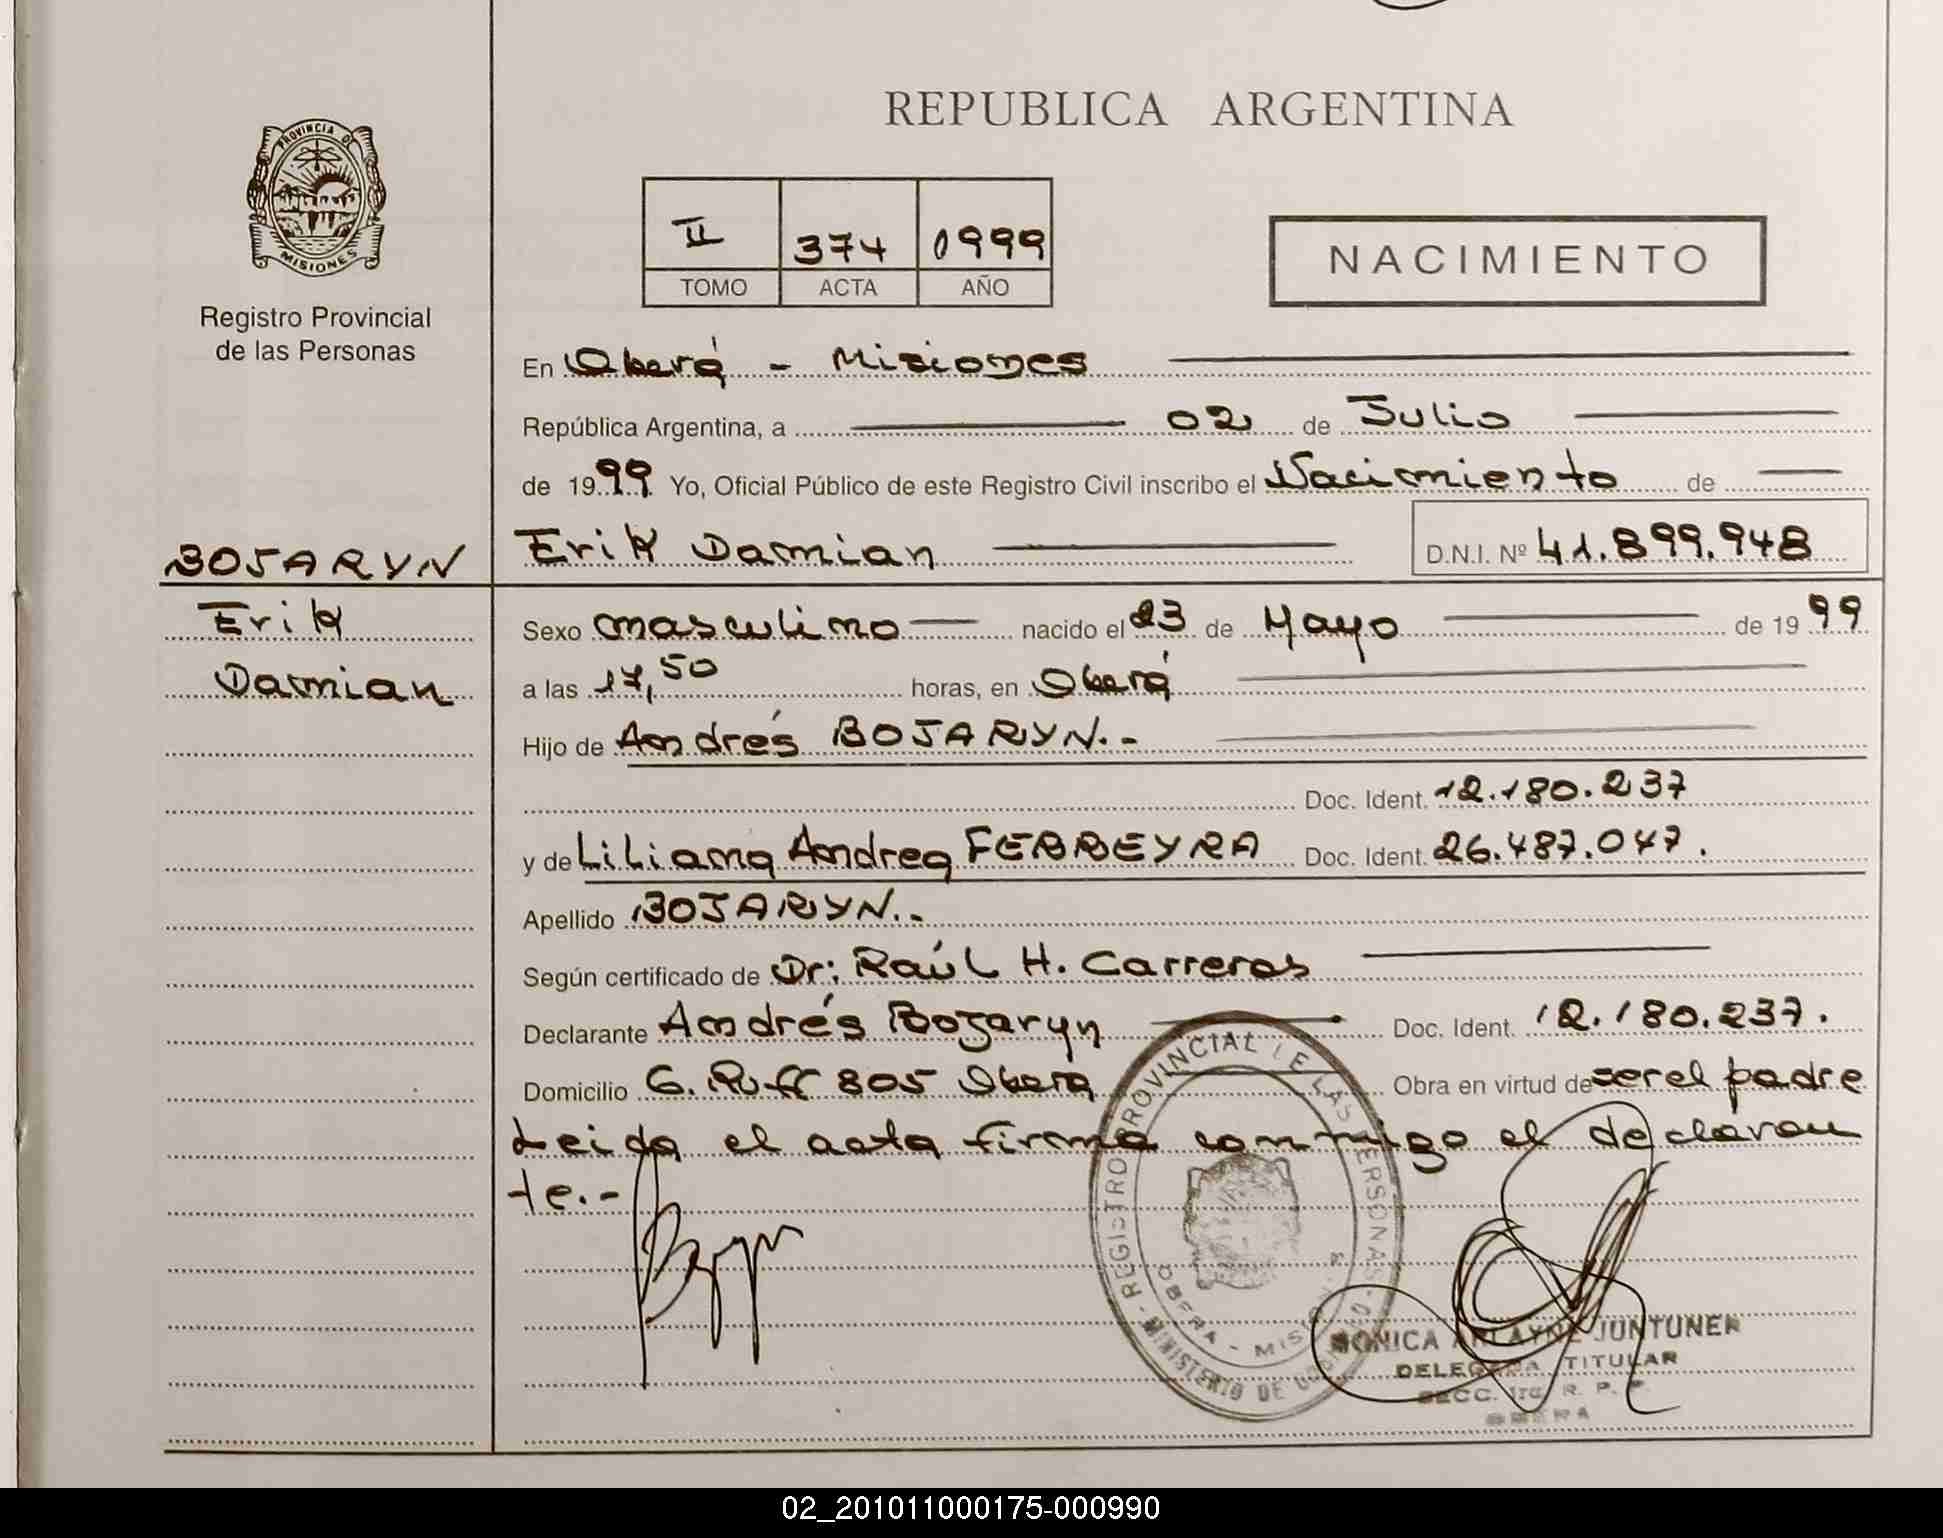 REPUBLICA ARGENTINA
PROVINCIA DE
MISIONES
Registro Provincial
de las Personas
II 374 0999
TOMO ACTA AÑO
NACIMIENTO
En Oberá - Misiones
República Argentina, a 02 de Julio
de 1999 Yo, Oficial Público de este Registro Civil inscribo el Nacimiento de
BOJARYN
Erik
Damian
Erik Damian D.N.I. Nº 41.899.948
Sexo masculino nacido el 23 de Mayo de 1999
a las 17,50 horas, en Oberá
Hijo de Andrés BOJARYN.-
Doc. Ident. 12.180.237
y de Liliana Andrea FERREYRA Doc. Ident. 26.487.047.
Apellido BOJARYN.-
Según certificado de Dr: Raúl H. Carreras
Declarante Andrés Bojaryn Doc. Ident. 12.180.237.
Domicilio G. Ruff 805 Obera Obra en virtud de ser el padre
Leida el acta firma conmigo el declaran
te.-
REGISTRO PROVINCIAL DE LAS PERSONAS
MINISTERIO DE
OBERA - MISIONES
MONICA JUNTUNEN
DELEGADA TITULAR
SECC. 1ra. R. P. P.
OBERA
02_201011000175-000990